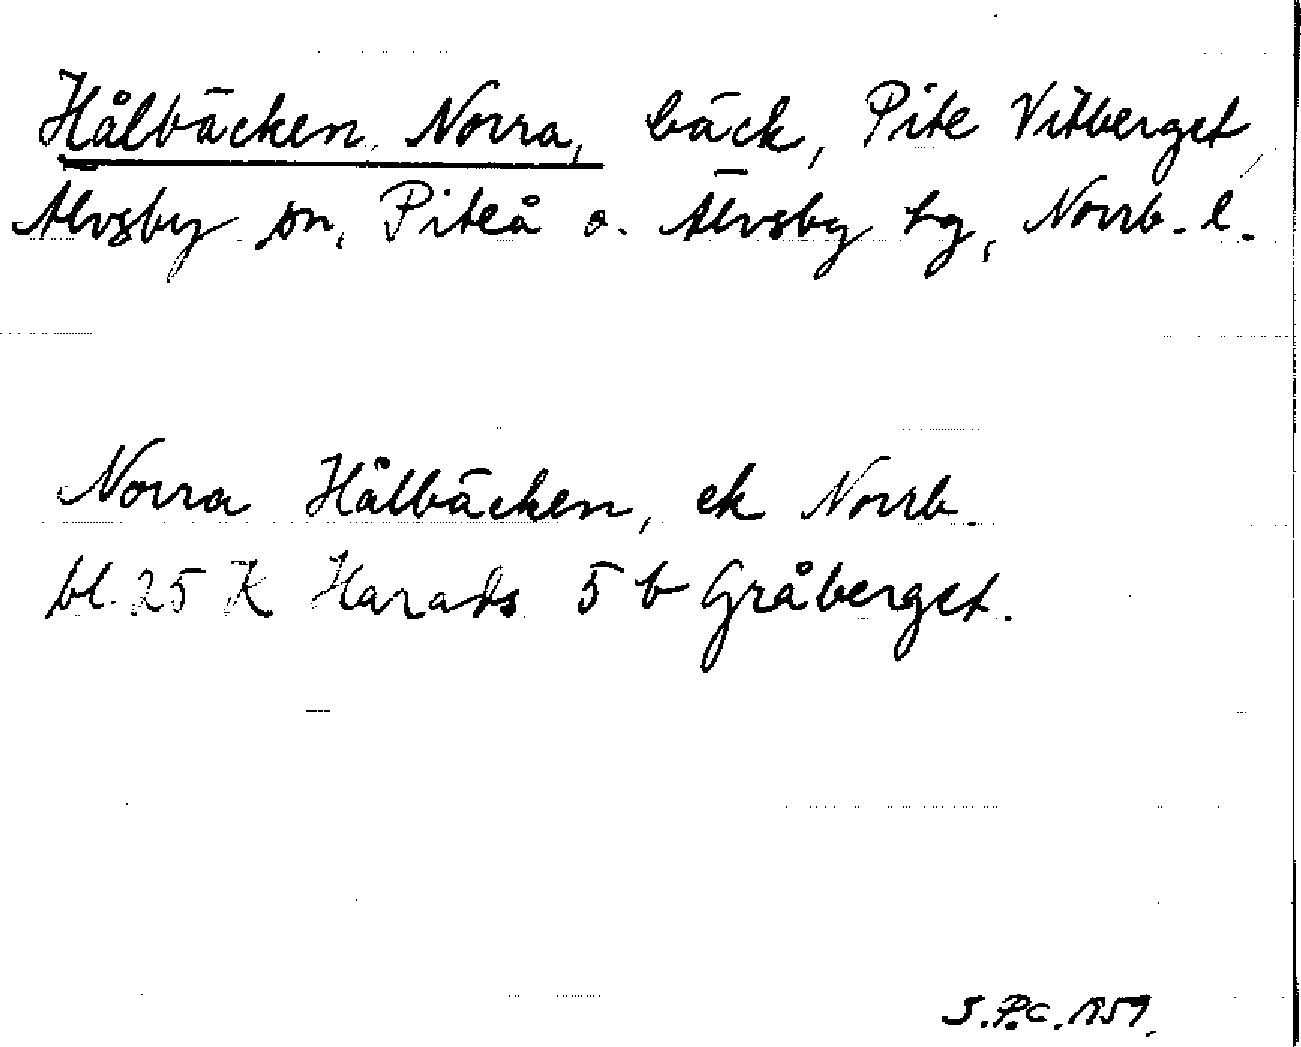 Hålbäcken, Norra, bäck, Pite Vitberget,
Älvsby sn, Piteå o. Älvsby tg, Norrb. l.
Norra Hålbäcken, ek Norrb.
bl. 25 K Harads 5 b Gråberget.
S.P.C. 1959.